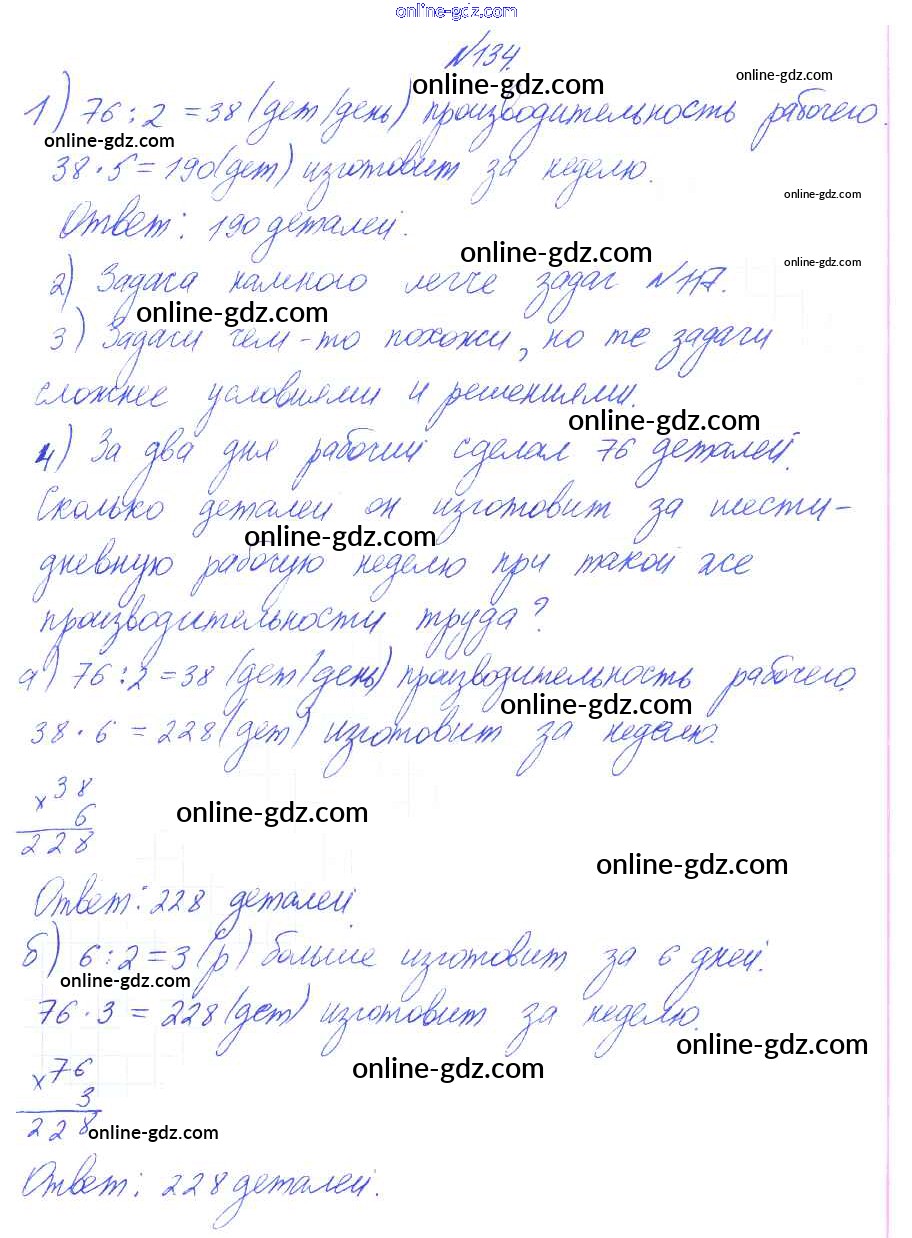 online-gdz.com
№134.
online-gdz.com
online-gdz.com
1) 76 : 2 = 38 (дет/день) производительность рабочего.
online-gdz.com
38 · 5 = 190 (дет) изготовит за неделю.
online-gdz.com
Ответ: 190 деталей.
online-gdz.com
online-gdz.com
2) Задача намного легче задач №117.
online-gdz.com
3) Задачи чем-то похожи, но те задачи
сложнее условиями и решениями.
online-gdz.com
4) За два дня рабочий сделал 76 деталей.
Сколько деталей он изготовит за шести-
online-gdz.com
дневную рабочую неделю при такой же
производительности труда?
а) 76 : 2 = 38 (дет/день) производительность рабочего.
online-gdz.com
38 · 6 = 228 (дет) изготовит за неделю.
× 38
6
online-gdz.com
228
online-gdz.com
Ответ: 228 деталей
б) 6 : 2 = 3 (р) больше изготовит за 6 дней.
online-gdz.com
76 · 3 = 228 (дет) изготовит за неделю.
online-gdz.com
× 76
online-gdz.com
3
228
online-gdz.com
Ответ: 228 деталей.
online-gdz.com